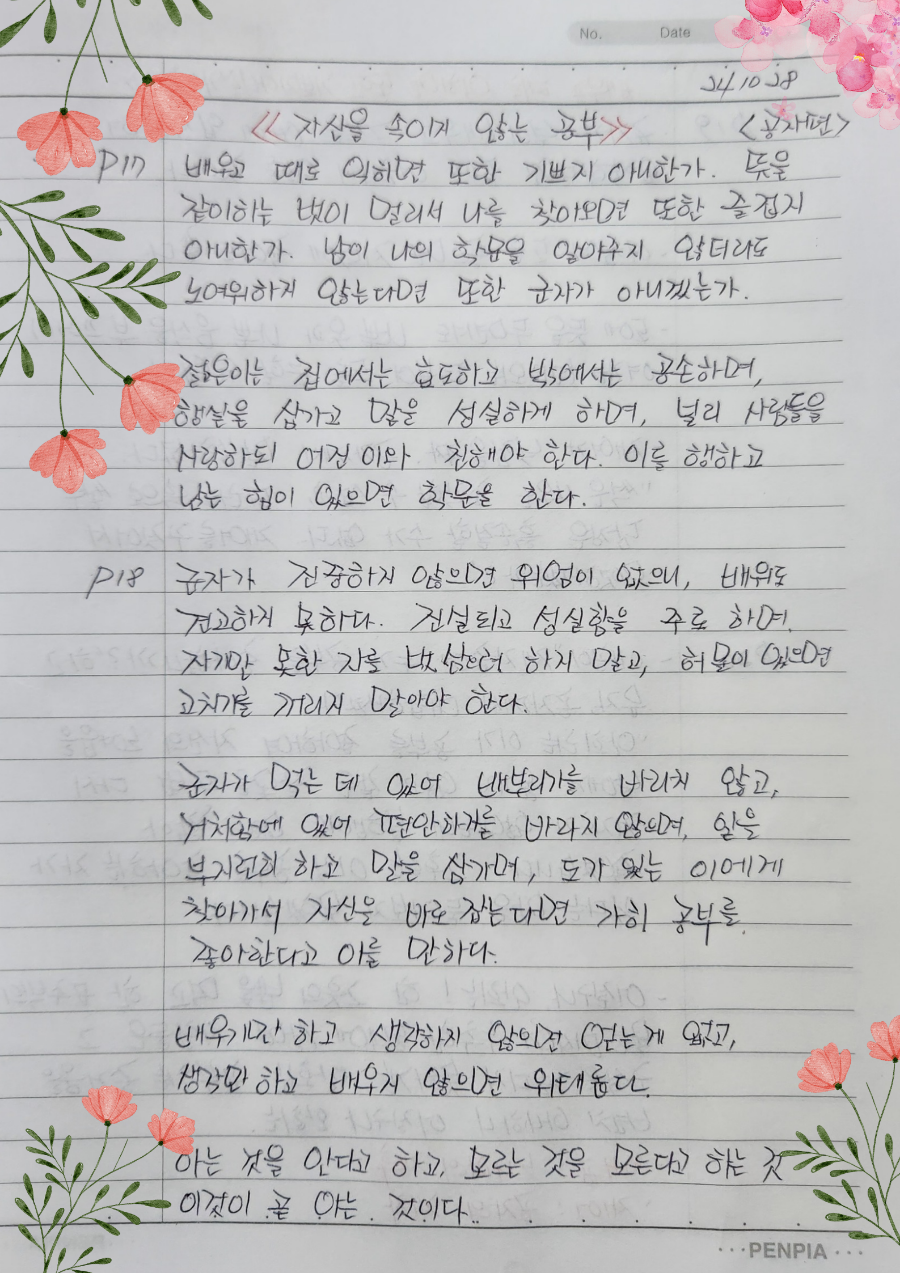 No. Date
24.10.28
《자신을 속이지 않는 공부》 <공자편>
P17 배우고 때로 익히면 또한 기쁘지 아니한가. 뜻을
같이하는 벗이 멀리서 나를 찾아오면 또한 즐겁지
아니한가. 남이 나의 학문을 알아주지 않더라도
노여워하지 않는다면 또한 군자가 아니겠는가.
젊은이는 집에서는 효도하고 밖에서는 공손하며,
행실을 삼가고 말을 성실하게 하며, 널리 사람들을
사랑하되 어진 이와 친해야 한다. 이를 행하고
남는 힘이 있으면 학문을 한다.
P18 군자가 진중하지 않으면 위엄이 없으니, 배워도
견고하지 못하다. 진실되고 성실함을 주로 하며,
자기만 못한 자를 벗 삼으려 하지 말고, 허물이 있으면
고치기를 꺼리지 말아야 한다.
군자가 먹는 데 있어 배부르기를 바라지 않고,
거처함에 있어 편안하기를 바라지 않으며, 일을
부지런히 하고 말을 삼가며, 도가 있는 이에게
찾아가서 자신을 바로 잡는다면 가히 공부를
좋아한다고 이를 만하다.
배우기만 하고 생각하지 않으면 얻는 게 없고,
생각만 하고 배우지 않으면 위태롭다.
아는 것을 안다고 하고, 모르는 것을 모른다고 하는 것
이것이 곧 아는 것이다.
PENPIA